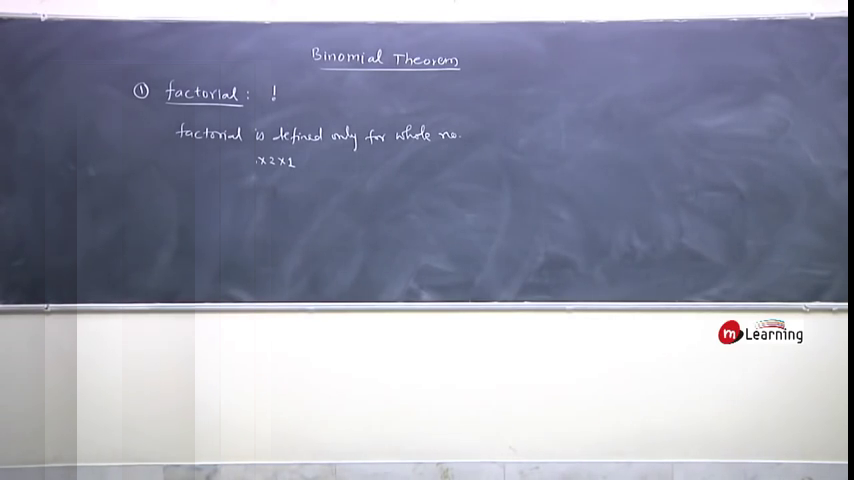 Binomial Theorem
① factorial : !
factorial is defined only for whole no.
.x2x1
m Learning